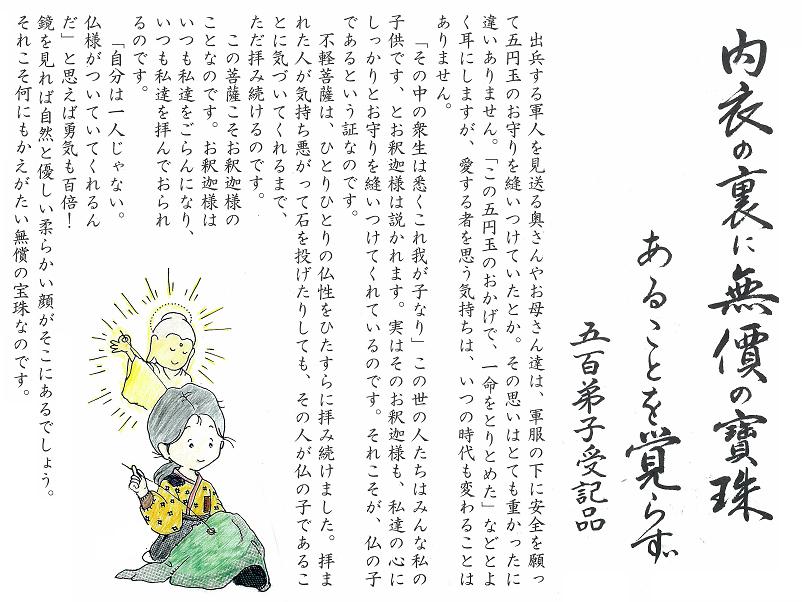 内衣の裏に無價の寶珠
あることを覚らず
五百弟子受記品
出兵する軍人を見送る奥さんやお母さん達は、軍服の下に安全を願っ
て五円玉のお守りを縫いつけていたとか。その思いはとても重かったに
違いありません。「この五円玉のおかげで、一命をとりとめた」などとよ
く耳にしますが、愛する者を思う気持ちは、いつの時代も変わることは
ありません。
「その中の衆生は悉くこれ我が子なり」この世の人たちはみんな私の
子供です、とお釈迦様は説かれます。実はそのお釈迦様も、私達の心に
しっかりとお守りを縫いつけてくれているのです。それこそが、仏の子
であるという証なのです。
不軽菩薩は、ひとりひとりの仏性をひたすらに拝み続けました。拝ま
れた人が気持ち悪がって石を投げたりしても、その人が仏の子であるこ
とに気づいてくれるまで、
ただ拝み続けるのです。
この菩薩こそお釈迦様の
ことなのです。お釈迦様は
いつも私達をごらんになり、
いつも私達を拝んでおられ
るのです。
「自分は一人じゃない。
仏様がついていてくれるん
だ」と思えば勇気も百倍！
鏡を見れば自然と優しい柔らかい顔がそこにあるでしょう。
それこそ何にもかえがたい無償の宝珠なのです。